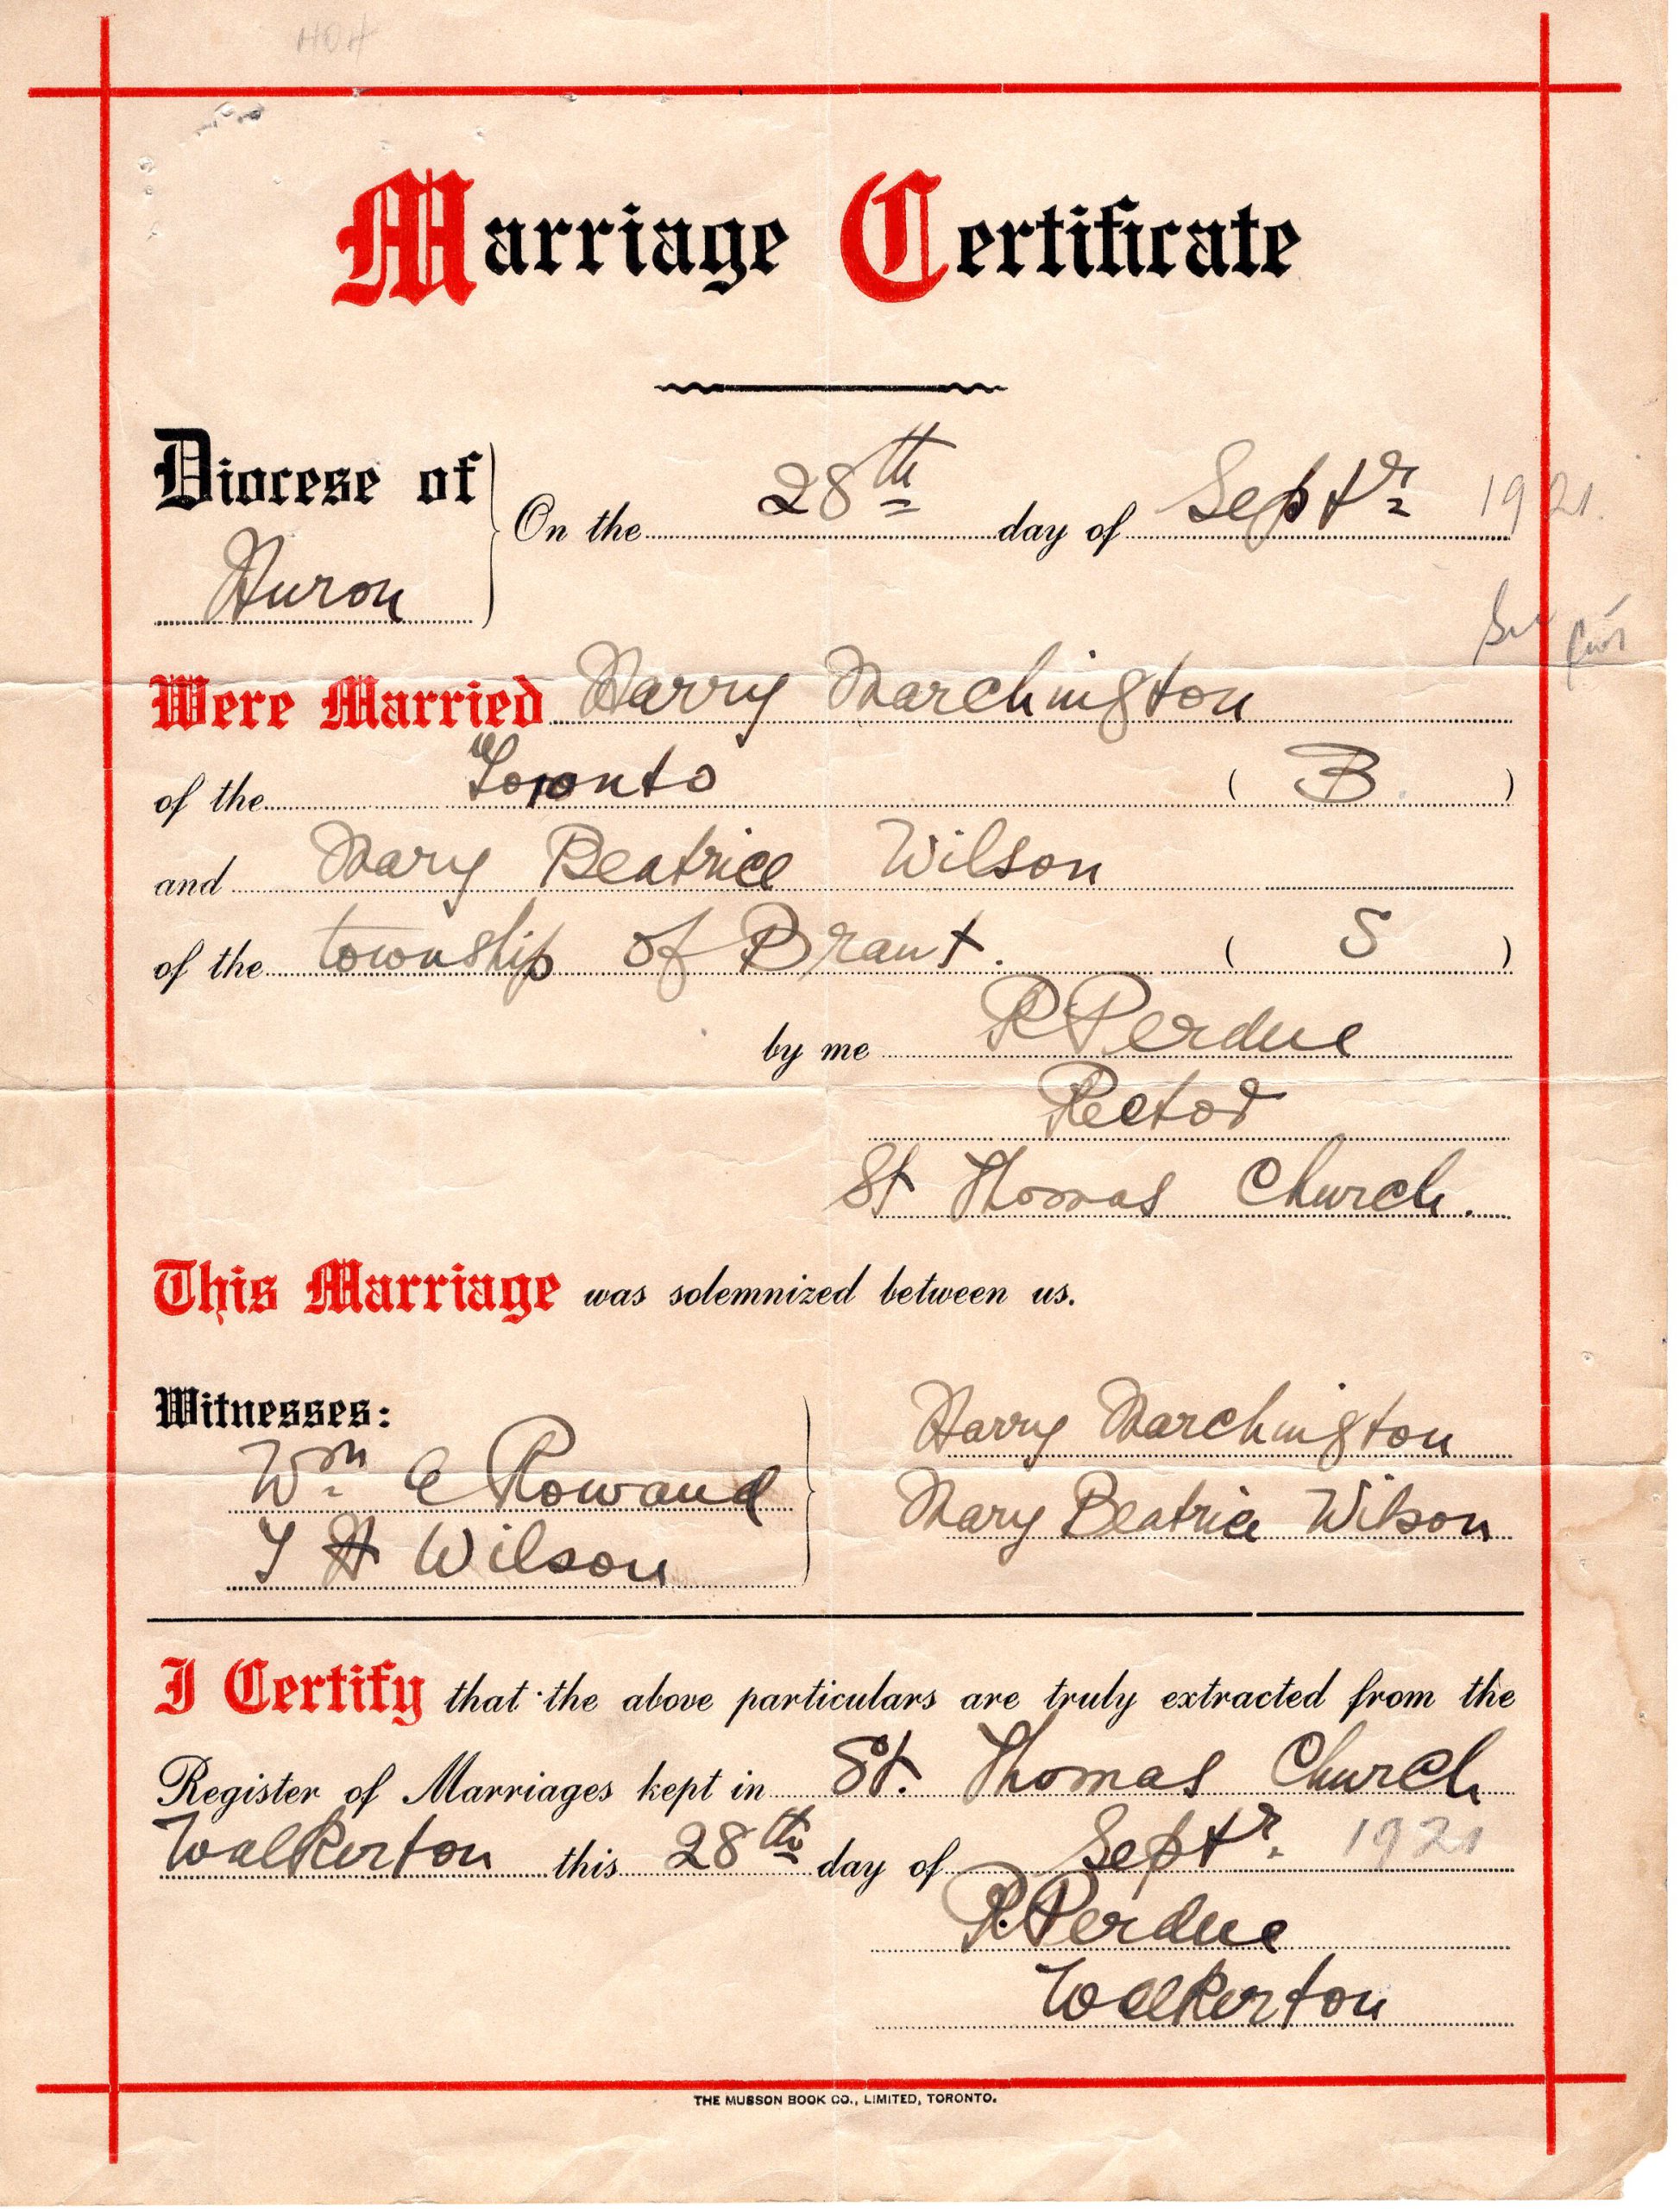 HOH
Marriage Certificate
Diocese of
Huron
On the 28th day of Septr 1921.
Were Married Harry Marchington
of the Toronto ( B. )
and Mary Beatrice Wilson
of the township of Brant. ( S )
by me R Perdue
Rector
St Thomas Church.
This Marriage was solemnized between us.
Witnesses:
Wm C Rowand
T H Wilson
Harry Marchington
Mary Beatrice Wilson
I Certify that the above particulars are truly extracted from the
Register of Marriages kept in St. Thomas Church
Walkerton this 28th day of Septr. 1921
R. Perdue
Walkerton
THE MUSSON BOOK CO., LIMITED, TORONTO.